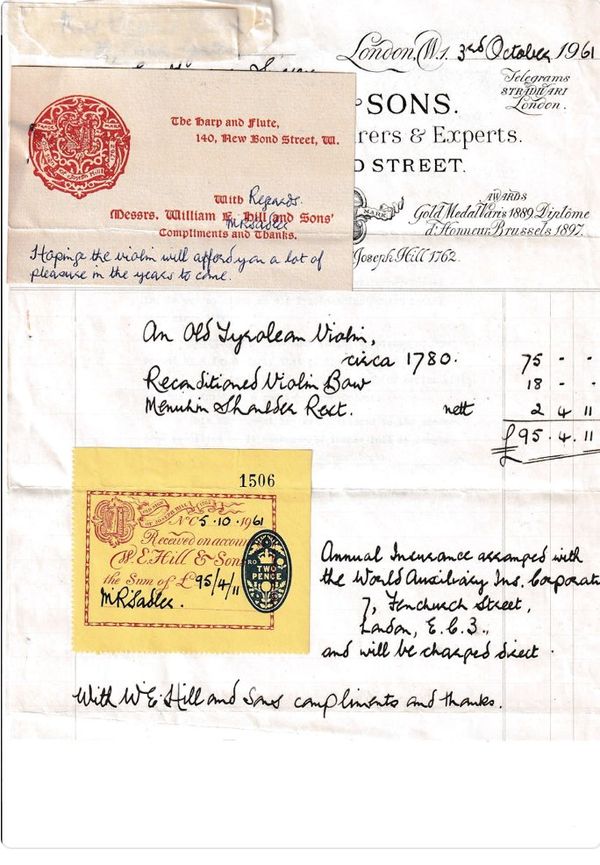 London, W.1. 3rd October 1961
Telegrams
STRADIVARI
London.
SONS.
rers & Experts.
D STREET.
AWARDS
Gold Medal Paris 1889. Diplôme
d'Honneur Brussels 1897.
MARK
Joseph Hill 1762.
The Harp and Flute,
140, New Bond Street, W.
With Regards
Messrs. William E. Hill and Sons'
MRSadler
Compliments and Thanks.
Hoping the violin will afford you a lot of
pleasure in the years to come.
An Old Tyrolean Violin,
circa 1780. 75 - -
Reconditioned Violin Bow 18 - -
Menuhin Shoulder Rest. nett 2 4 11
£95. 4. 11
1506
5.10.1961
Received on accoun
W. E. Hill & Son
the Sum of £95/4/11
MRSadler.
TWO
PENCE
Annual Insurance arranged with
the World Auxiliary Ins. Corporati
7, Fenchurch Street,
London, E.C.3.,
and will be charged direct.
With W.E. Hill and Sons compliments and thanks.